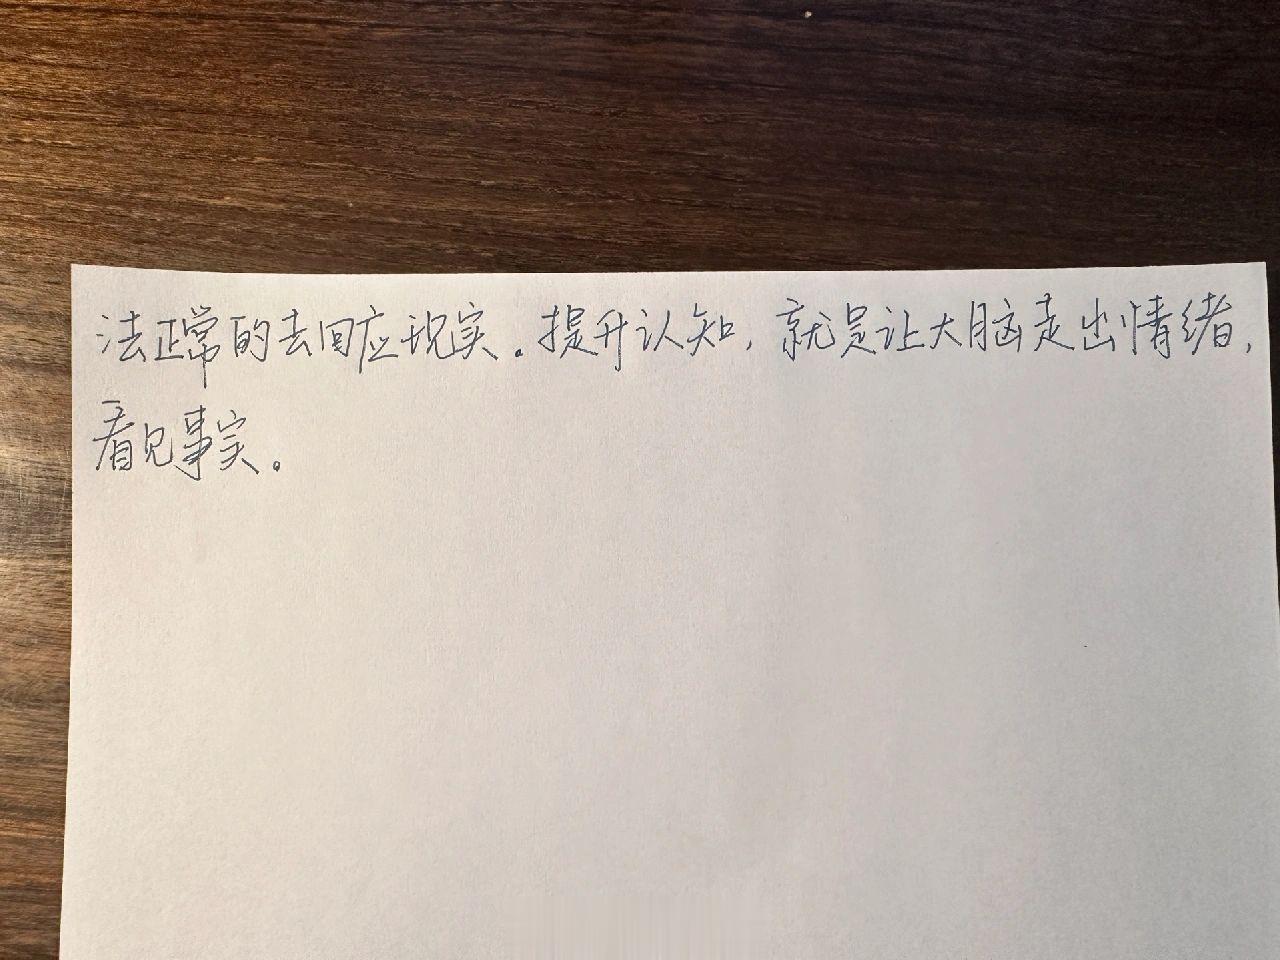 法正常的去回应现实。提升认知,就是让大脑走出情绪,
看见事实。